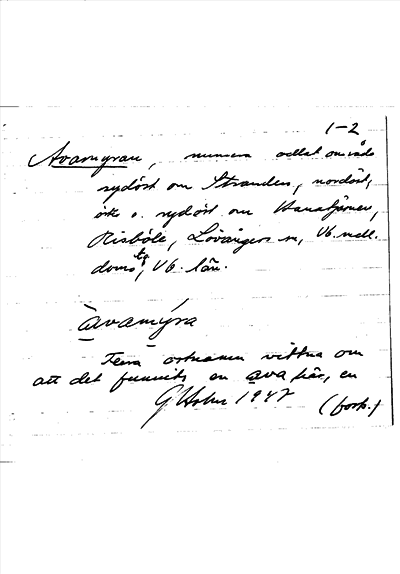 1-2
Avamyran, numera odlat område
sydöst om Stranden, nordöst,
öst o. sydöst om Hanatjärnen,
Risböle, Lövångers sn, Vb. mell.
doms tg, Vb. län.
àvamýra
Flera ortnamn vittna om
att det funnits en ava här, en
G Holm 1947
(forts.)